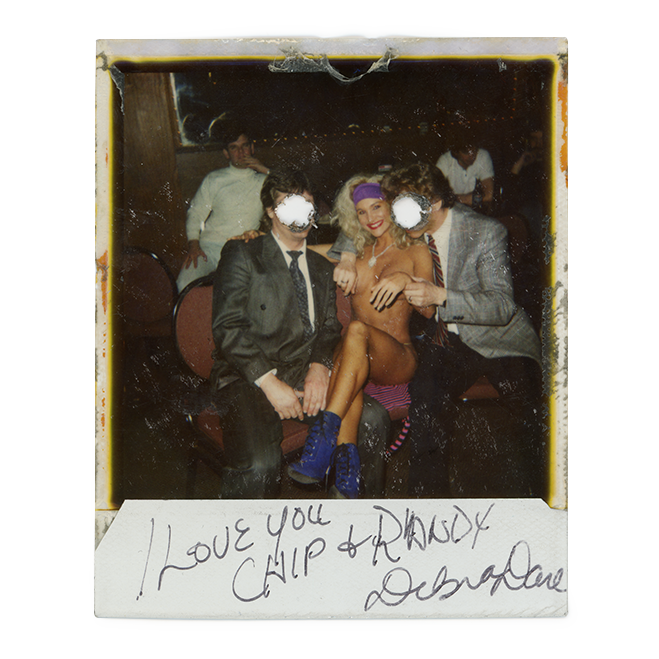 I LOVE YOU
CHIP & RANDY
Debra Dare